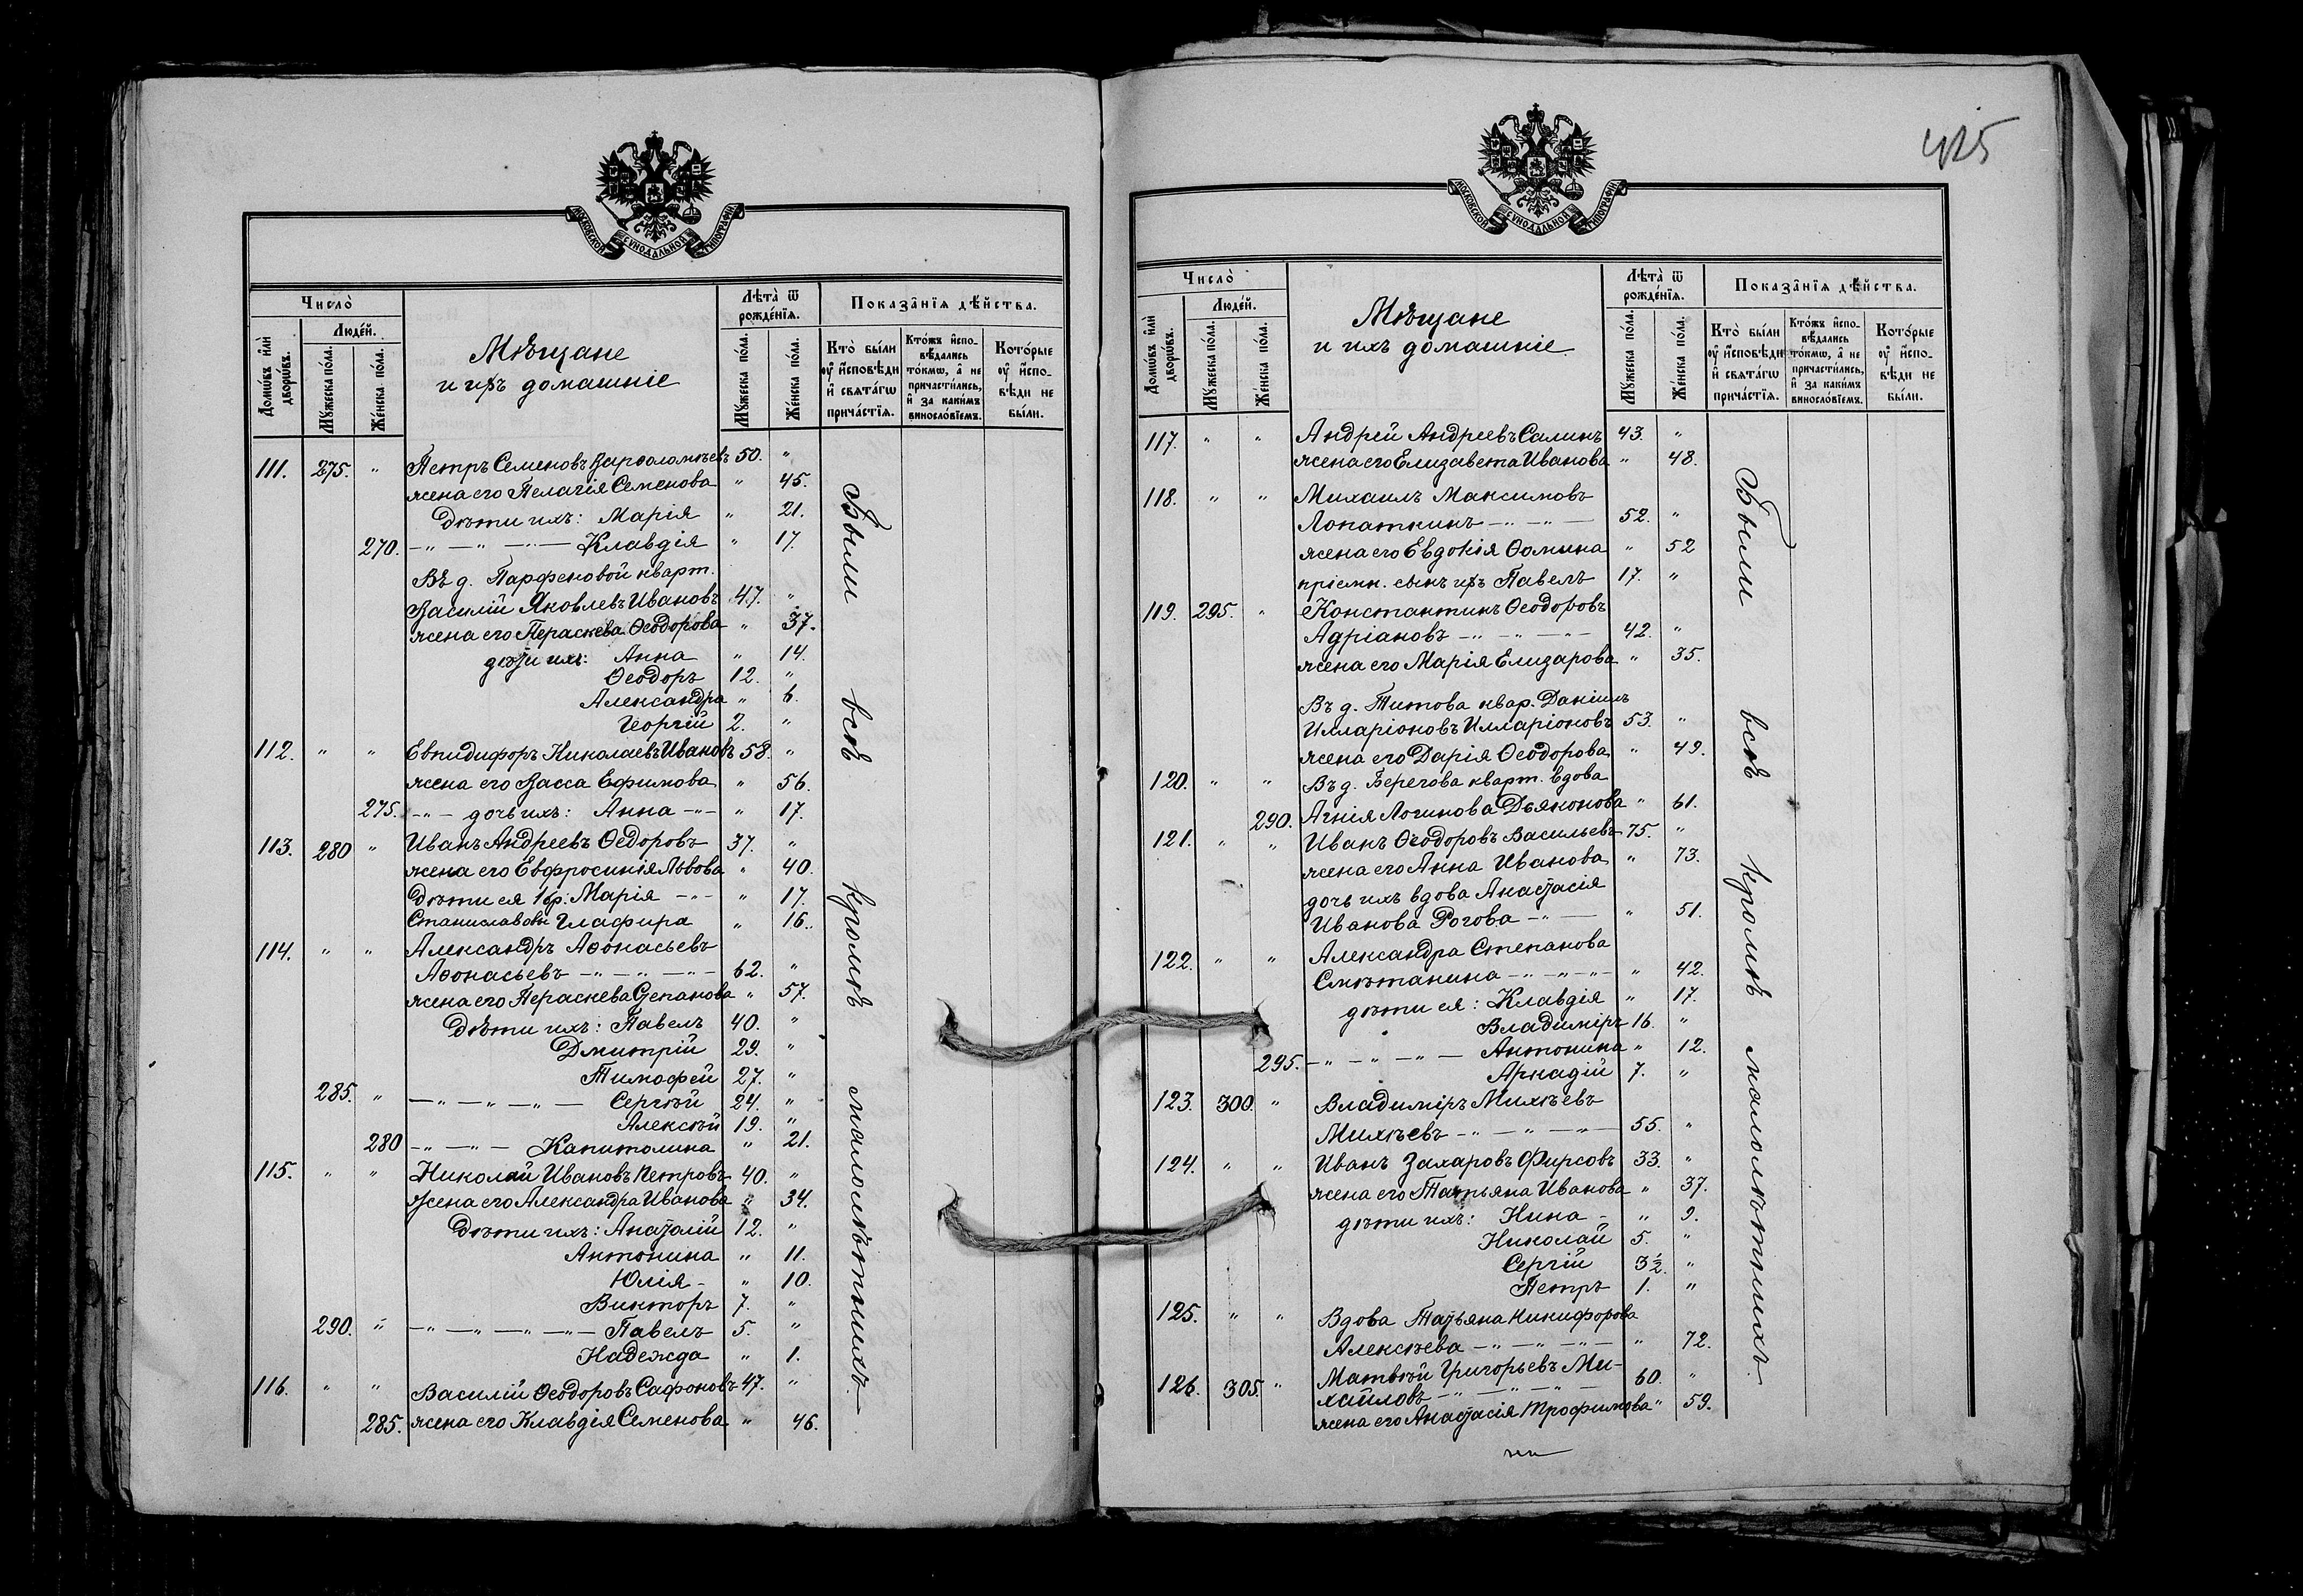 МОСКОВСКОЙ СУНОДАЛЬНОЙ ТИПОГРАФІИ.
Число̀
Домѡ́въ и҆лѝ дворѡ́въ.
Люде́й.
Мꙋ́жеска по́ла.
Же́нска по́ла.
Мѣщане
и ихъ домашніе
Лѣта̀ ѿ рожде́нїѧ.
Мꙋ́жеска по́ла.
Же́нска по́ла.
Показа̑нїѧ дѣ́йства.
Кто̀ бы́ли оу҆ и҆́сповѣди и҆ свѧта́гѡ прича́стїѧ.
Кто́жъ и҆спо-вѣ́дались то́кмѡ, а҆ не причасти́лись, и҆ за каки́мъ винослові́емъ.
Кото́рые оу҆ и҆спо-вѣ́ди не бы́ли.
111. 275. „ Петръ Семеновъ Варѳоломѣевъ 50. „
жена его Пелагія Семенова „ 45.
Дѣти ихъ: Марія „ 21.
270. —„—„—„— Клавдія „ 17.
Въ д. Парфеновой кварт.
Василій Яковлевъ Ивановъ 47. „
жена его Параскева Ѳеодорова „ 37.
дѣти ихъ: Анна „ 14.
Ѳеодоръ 12. „
Александра „ 6.
Георгій 2. „
112. „ „ Евпидифоръ Николаевъ Ивановъ 58. „
жена его Васса Ефимова „ 56.
275. —„— дочь ихъ: Анна —„— „ 17.
113. 280 „ Иванъ Андреевъ Ѳедоровъ 37. „
жена его Евфросинія Львова „ 40.
Дѣти ея 1 бр: Марія —„— „ 17.
Станиславовы Глафира „ 16.
114. „ „ Александръ Аѳонасьевъ
Аѳонасьевъ —„—„—„— 62. „
жена его Параскева Степанова „ 57.
Дѣти ихъ: Павелъ 40. „
Дмитрій 29. „
Тимофей 27. „
285. „ —„—„—„— Сергѣй 24. „
Алексѣй 19. „
280 —„—„— Капитолина „ 21.
115. „ „ Николай Ивановъ Петровъ 40. „
жена его Александра Иванова „ 34.
Дѣти ихъ: Анатолій 12. „
Антонина „ 11.
Юлія - „ 10.
Викторъ 7. „
290. „ —„—„—„—„— Павелъ 5. „
Надежда „ 1.
116. „ „ Василій Ѳеодоровъ Сафоновъ 47. „
285. жена его Клавдія Семенова „ 46.
Были всѣ кромѣ малолѣтнихъ.
425
МОСКОВСКОЙ СУНОДАЛЬНОЙ ТИПОГРАФІИ.
Число̀
Домѡ́въ и҆лѝ дворѡ́въ.
Люде́й.
Мꙋ́жеска по́ла.
Же́нска по́ла.
Мѣщане
и ихъ домашніе.
Лѣта̀ ѿ рожде́нїѧ.
Мꙋ́жеска по́ла.
Же́нска по́ла.
Показа̑нїѧ дѣ́йства.
Кто̀ бы́ли оу҆ и҆́сповѣди и҆ свѧта́гѡ прича́стїѧ.
Кто́жъ и҆спо-вѣ́дались то́кмѡ, а҆ не причасти́лись, и҆ за каки́мъ винослові́емъ.
Кото́рые оу҆ и҆спо-вѣ́ди не бы́ли.
117. „ „ Андрей Андреевъ Салинъ 43. „
жена его Елизавета Иванова „ 48.
118. „ „ Михаилъ Максимовъ
Лопаткинъ —„—„— 52. „
жена его Евдокія Ѳомина „ 52
пріемн. сынъ ихъ Павелъ 17. „
119. 295. „ Константинъ Ѳеодоровъ
Адріановъ —„—„—„— 42. „
жена его Марія Елизарова „ 35.
Въ д. Титова квар. Даніилъ
Илларіоновъ Илларіоновъ 53. „
жена его Дарія Ѳеодорова „ 49.
120. „ „ Въ д. Берегова кварт. вдова
290. Агнія Логинова Дьяконова „ 61.
121. „ „ Иванъ Ѳеодоровъ Васильевъ 75. „
жена его Анна Иванова „ 73.
дочь ихъ вдова Анастасія
Иванова Рогова —„— „ 51.
122. „ „ Александра Степанова
Смѣтанина —„—„—„— „ 42.
дѣти ея: Клавдія „ 17.
Владиміръ 16. „
295. —„—„—„— Антонина „ 12.
Аркадій 7. „
123. 300. „ Владиміръ Михѣевъ
Михѣевъ —„—„—„— 55. „
124. „ „ Иванъ Захаровъ Фирсовъ 33. „
жена его Татьяна Иванова „ 37.
дѣти ихъ: Нина - „ 9.
Николай 5. „
Сергій 3½. „
Петръ 1. „
125. „ „ Вдова Татьяна Никифорова
Алексѣева —„—„—„— „ 72.
126. 305. „ Матвѣй Григорьевъ Ми-
хайловъ —„—„—„— 60. „
жена его Анастасія Трофимова „ 59.
Были всѣ кромѣ малолѣтнихъ.